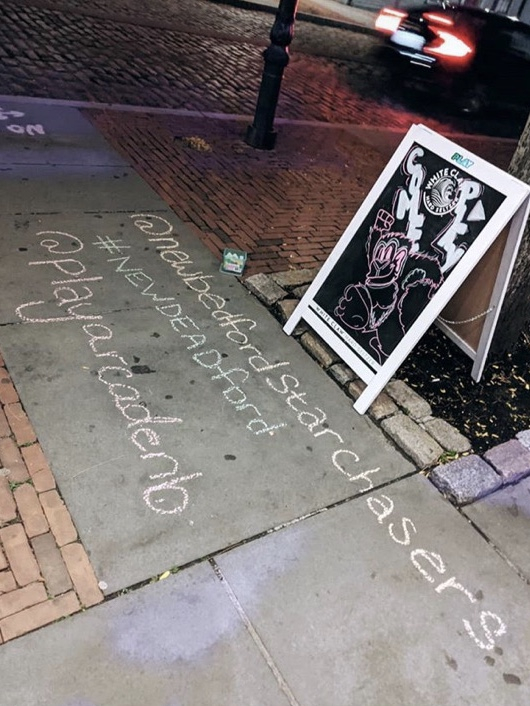 @newbedfordstarchasers
#NEWDEADford
@playarcadenb
ON
PLAY
WHITE CLAW
HARD SELTZER
COME PLAY
WHITE CLAW